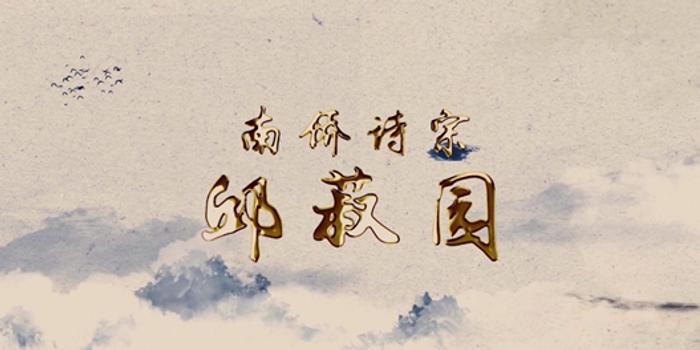 南侨诗宗
邱菽园